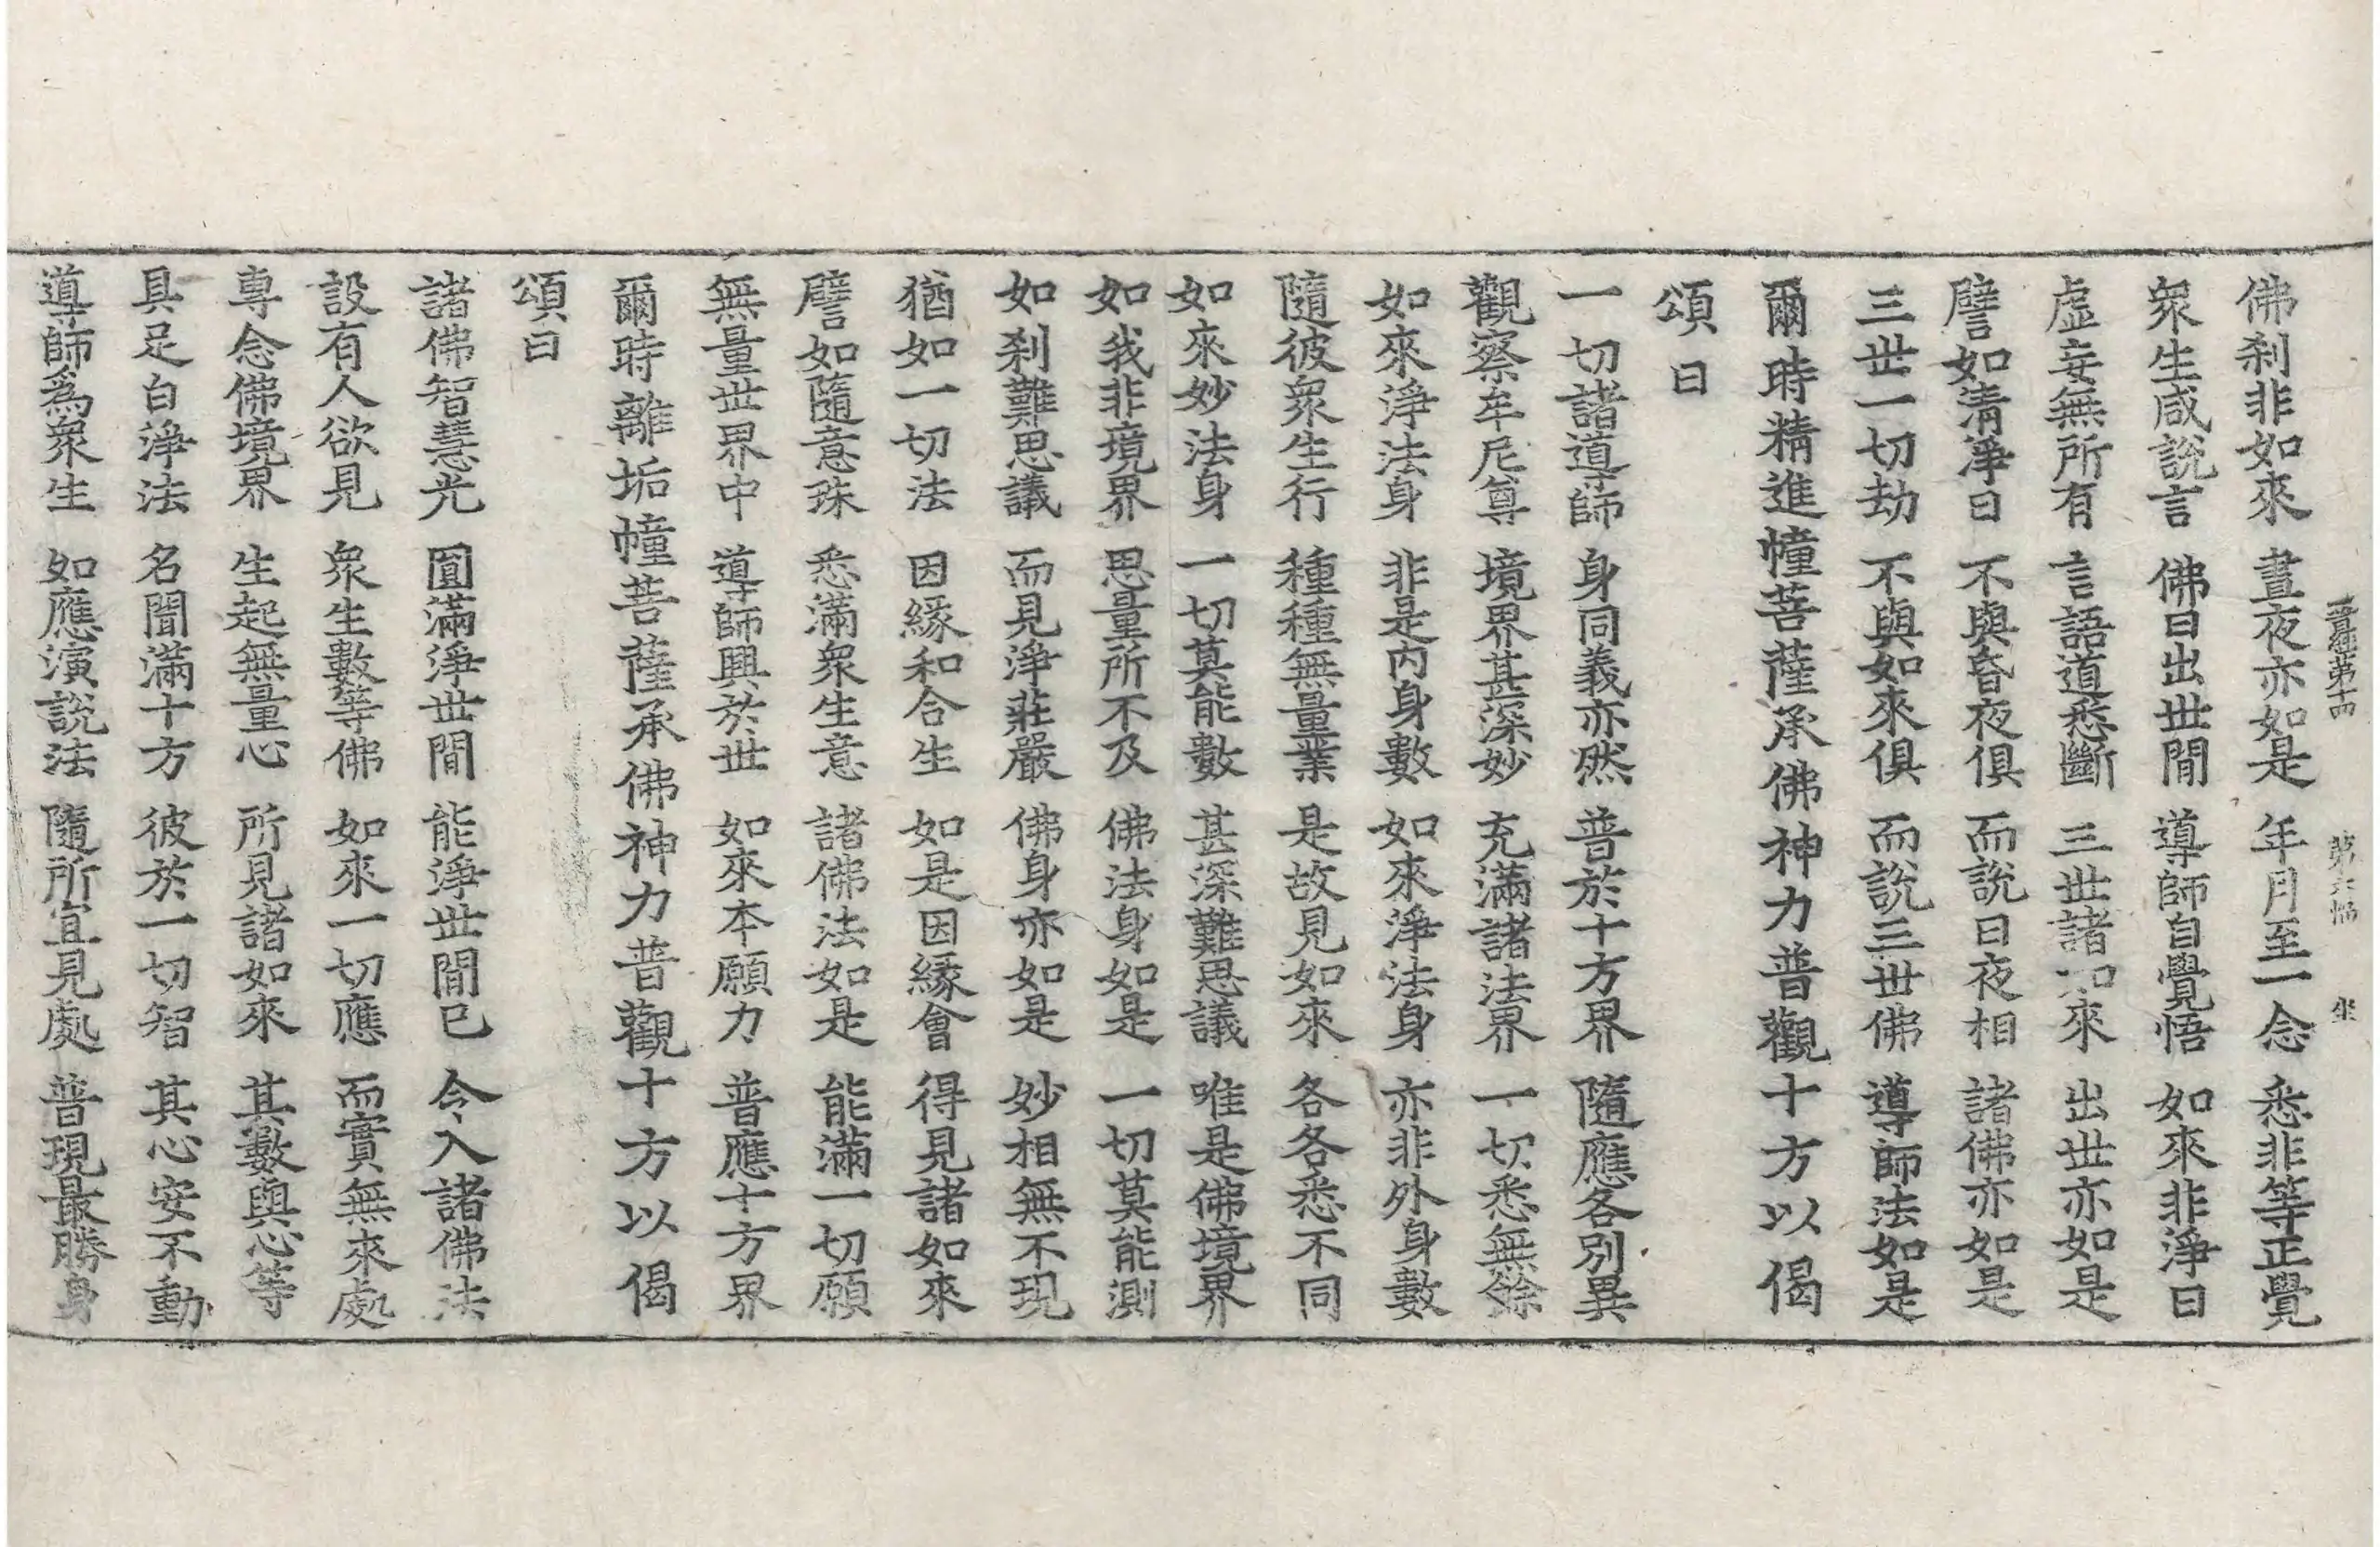 晉經第十四 第六幅 坐
佛刹非如來 晝夜亦如是 年月至一念 悉非等正覺
衆生咸説言 佛日出世間 導師自覺悟 如來非淨日
虛妄無所有 言語道悉斷 三世諸如來 出世亦如是
譬如淸淨日 不與昏夜俱 而説日夜相 諸佛亦如是
三世一切劫 不與如來俱 而説三世佛 導師法如是
爾時精進幢菩薩承佛神力普觀十方以偈
頌曰
一切諸導師 身同義亦然 普於十方界 隨應各別異
觀察牟尼尊 境界甚深妙 充滿諸法界 一切悉無餘
如來淨法身 非是内身數 如來淨法身 亦非外身數
隨彼衆生行 種種無量業 是故見如來 各各悉不同
如來妙法身 一切莫能數 甚深難思議 唯是佛境界
如我非境界 思量所不及 佛法身如是 一切莫能測
如刹難思議 而見淨莊嚴 佛身亦如是 妙相無不現
猶如一切法 因緣和合生 如是因緣會 得見諸如來
譬如隨意珠 悉滿衆生意 諸佛法如是 能滿一切願
無量世界中 導師興於世 如來本願力 普應十方界
爾時離垢幢菩薩承佛神力普觀十方以偈
頌曰
諸佛智慧光 圓滿淨世間 能淨世間已 令入諸佛法
設有人欲見 衆生數等佛 如來一切應 而實無來處
專念佛境界 生起無量心 所見諸如來 其數與心等
具足白淨法 名聞滿十方 彼於一切智 其心安不動
導師爲衆生 如應演説法 隨所宜見處 普現最勝身